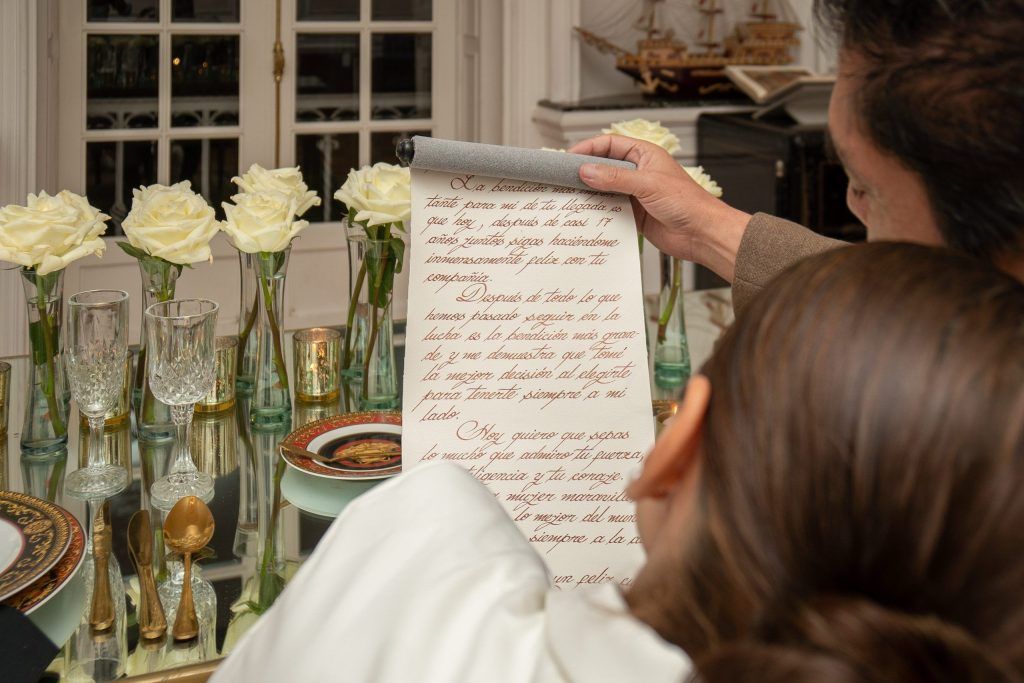 La bendición más
tante para mi de tu llegada es
que hoy, después de casi 17
años juntos sigas haciéndome
inmensamente feliz con tu
compañía.
Después de todo lo que
hemos pasado seguir en la
lucha es la bendición más gran
de y me demuestra que tomé
la mejor decisión al elegirte
para tenerte siempre a mi
lado.
Hoy quiero que sepas
lo mucho que admiro tu fuerza,
teligencia y tu coraje.
mujer maravill
lo mejor del mun
siempre a la
un feliz